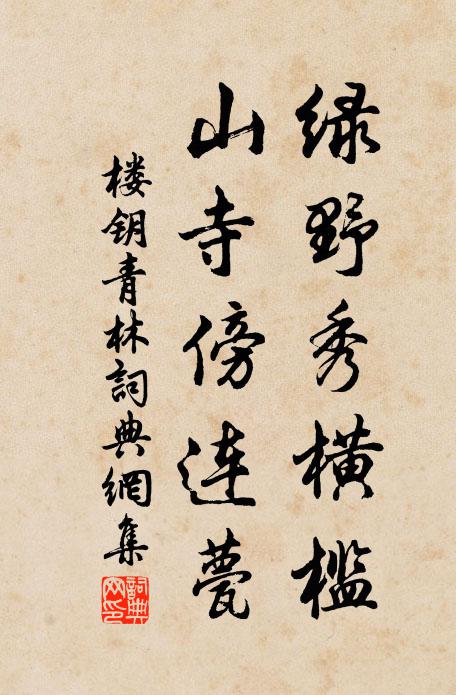 绿野秀横槛
山寺傍连甍
楼钥青林詞典網集
詞典網印